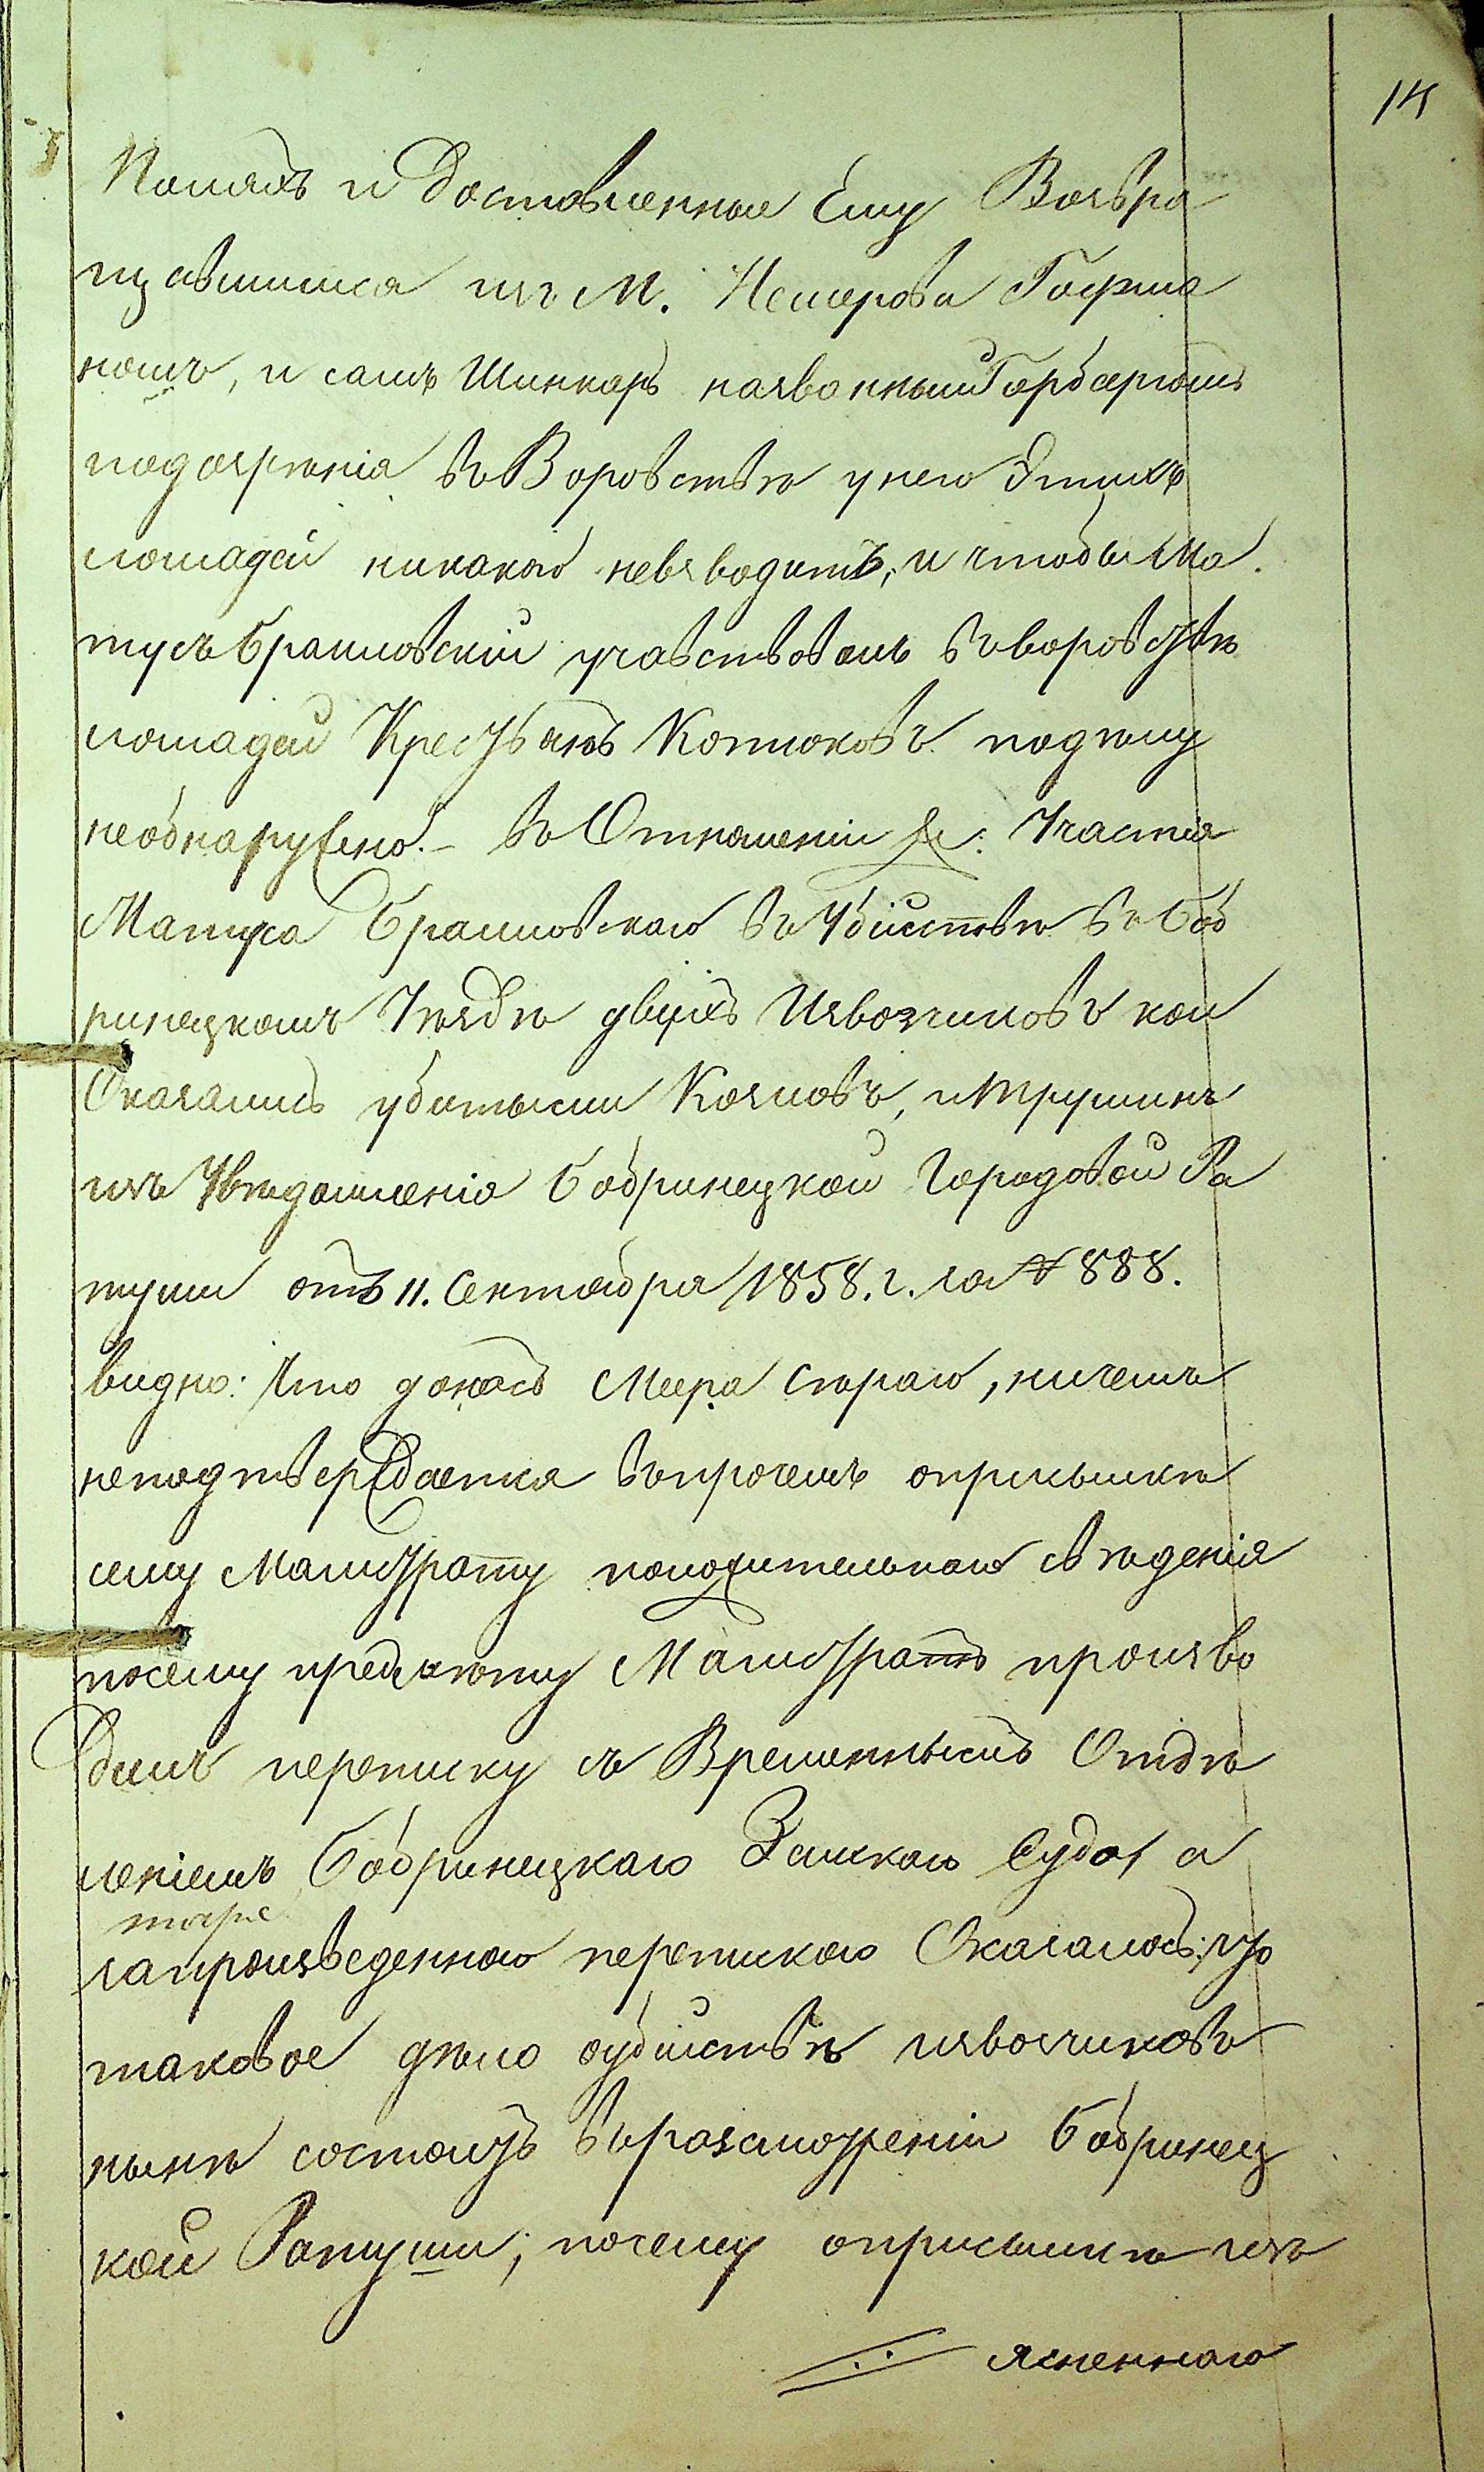 14
Поляхъ и доставленные ему Возвра
щавшимся изъ М. Немерова Гофма
номъ, и самъ Шинкаръ названный Горбергомъ
подозрѣнія въ Воровствѣ у него Этихъ
лошадей никакого невзводитъ, и чтобы Ма
тусъ Браиловскій учавствовалъ въ воровствѣ
лошадей Крестьянъ Котюковъ подѣлу
необнаружено. – въ Отношеніи же: Участія
Матуса Браиловскаго въ Убійствѣ въ Боб
ринецкомъ Уѣздѣ двухъ Извозчиковъ кои
Оказались убитыми Козловъ, и Трушинъ
изъ Увѣдомленія Бобринецкой Городовой Ра
туши отъ 11. Сентября 1858. г. за № 888.
видно: что доносъ Меера Сѣраго, ничемъ
неподтверждается впрочемъ оприсылкѣ
сему Магистрату положительнаго свѣдѣнія
посему предмѣту Магистратъ произво
дилъ переписку съ Временнымъ Отдѣ
леніемъ Бобринецкаго Земскаго Суда, а
тоже
запроизведенною перепискою Оказалось: что
таковое дѣло оубійствѣ извозчиковъ
нынѣ состоитъ въ разсмотреніи Бобринец
кой Ратуши, почему оприсылкѣ изъ
ясненнаго